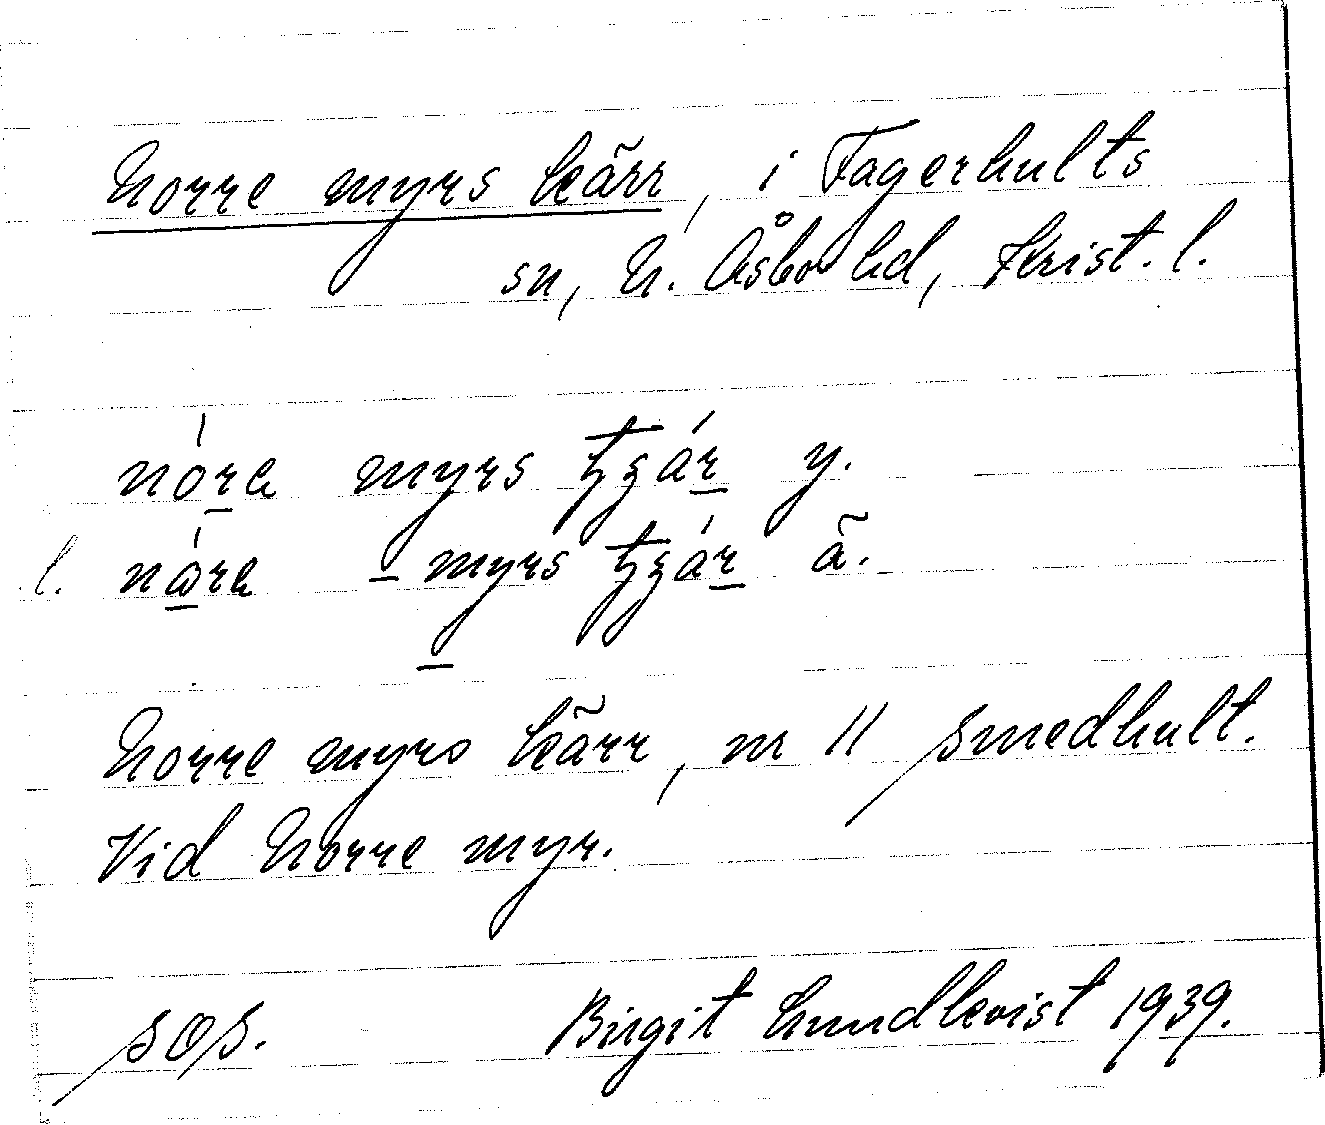 Norre myrs kärr, i Fagerhults
sn, N. Åsbo hd, Krist. l.
nóre myrs tʒár y.
l. nóre - myrs tʒár ä.
Norre myrs kärr, m // Smedhult.
Vid Norre myr.
SOS. Birgit Lundkvist 1939.